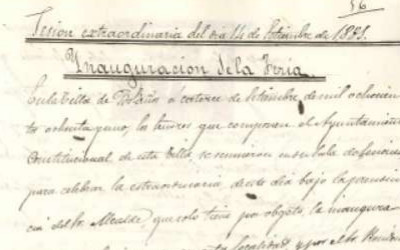 56
Sesion extraordinaria del dia 14 de Setiembre de 1881.
Inauguracion de la Feria.
En la Villa de á catorce de Setiembre de mil ochocien
tos ochenta y uno, los Señores que componen el Ayuntamiento
Constitucional de esta Villa se reunieron en su Sala de Sesiones
para celebrar la extraordinaria, de este dia bajo la presiden
cia del Sr. Alcalde, que solo tiene por objeto, la inaugura
localidad y por el Sr.